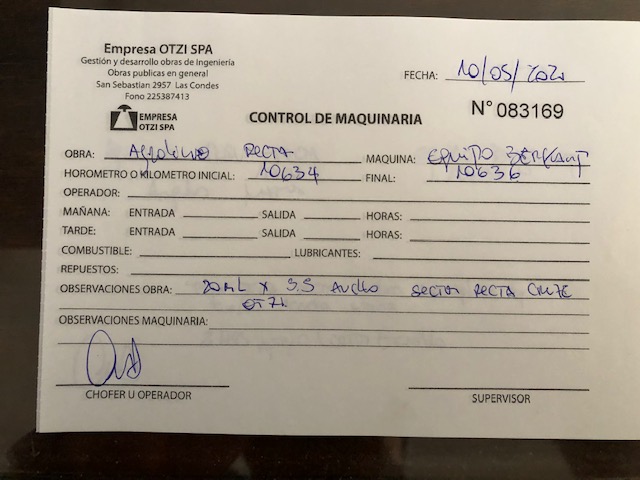 Empresa OTZI SPA
Gestión y desarrollo obras de Ingeniería
Obras publicas en general
San Sebastian 2957 Las Condes
Fono 225387413
FECHA: 10/05/2021
EMPRESA OTZI SPA
CONTROL DE MAQUINARIA N° 083169
OBRA: Recta MAQUINA: Equipo
HOROMETRO O KILOMETRO INICIAL: 10634 FINAL: 10636
OPERADOR:
MAÑANA: ENTRADA SALIDA HORAS:
TARDE: ENTRADA SALIDA HORAS:
COMBUSTIBLE: LUBRICANTES:
REPUESTOS:
OBSERVACIONES OBRA: 20 ML x 3.5 Ancho Sector Recta Cruce
OTZI
OBSERVACIONES MAQUINARIA:
CHOFER U OPERADOR SUPERVISOR